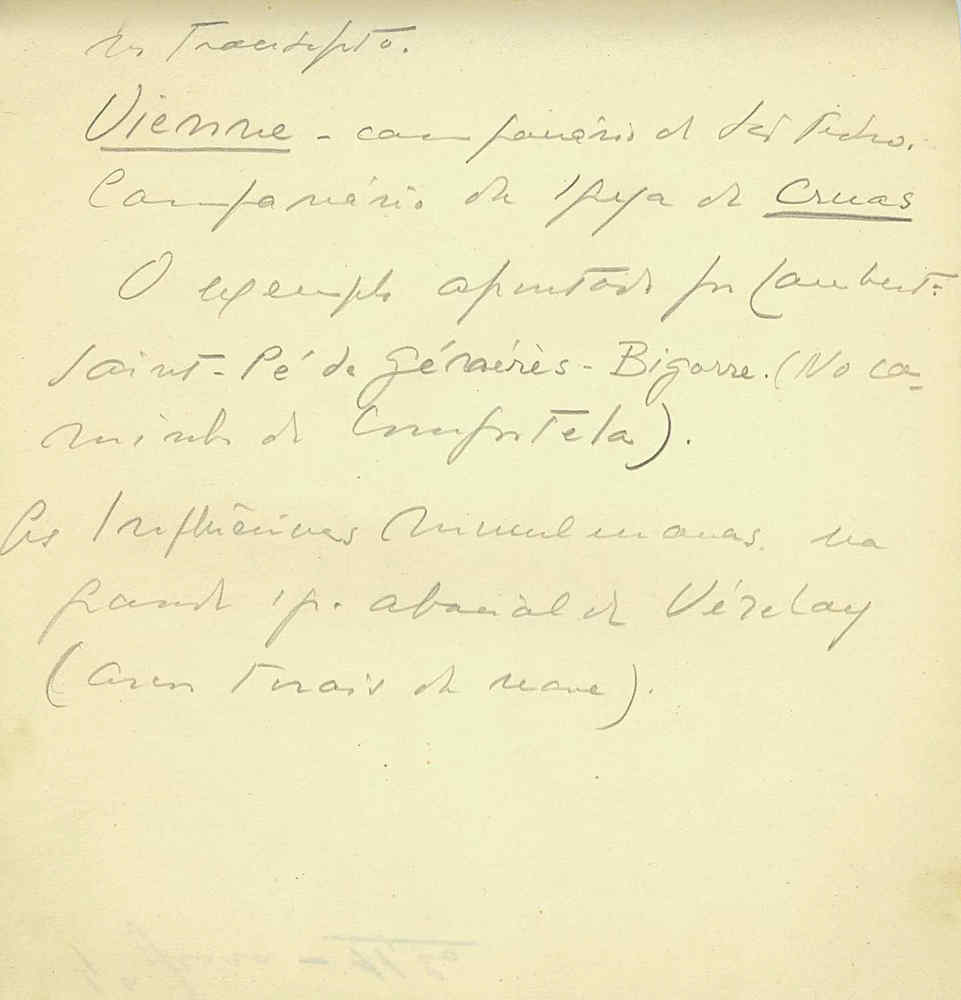 no Transepto.
Vienne - campanário de São Pedro.
Campanário da Igreja de Cruas
O exemplo apontado por Lambert:
Saint-Pé de Générès-Bigorre. (No ca-
minho de Compostela).
As Influências muçulmanas na
grande ig. abacial de Vézelay
(arcos torais da nave).